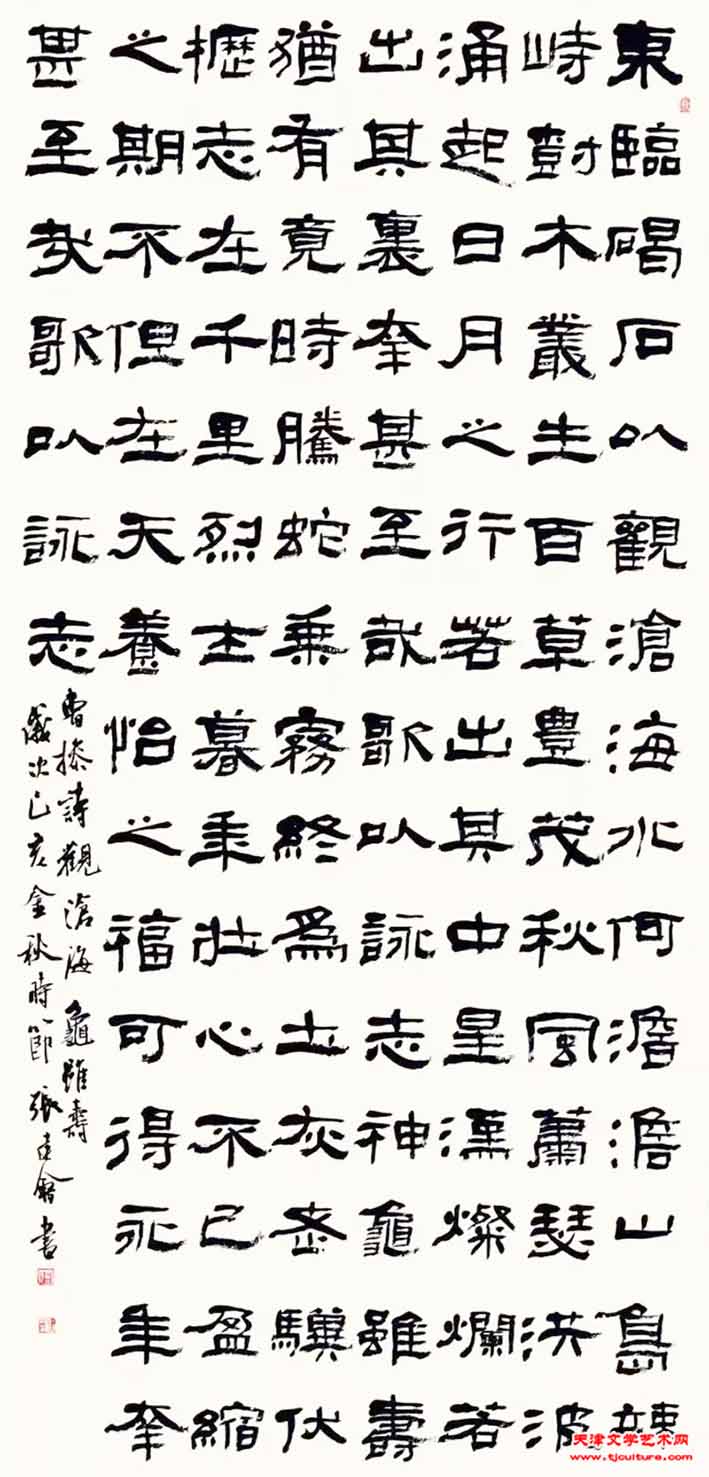 東臨碣石以觀滄海水何澹澹山島竦
峙樹木叢生百草豐茂秋風蕭瑟洪波
涌起日月之行若出其中星漢燦爛若
出其裏幸甚至哉歌以詠志神龜雖壽
猶有竟時騰蛇乘霧終爲土灰老驥伏
櫪志在千里烈士暮年壯心不已盈縮
之期不但在天養怡之福可得永年幸
甚至哉歌以詠志
曹操詩觀滄海龜雖壽
歲次己亥金秋時節張建會書
天津文学艺术网
www.tjculture.com